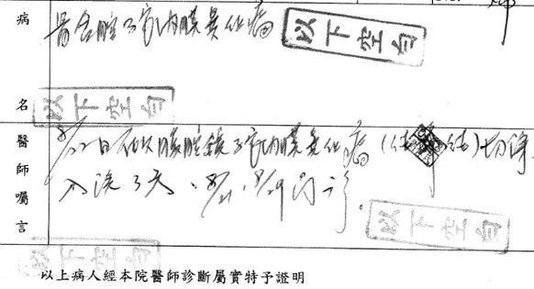 病名
骨盆腔子宮內膜異位瘤
以下空白
以下空白
醫師囑言
8/22日在以腹腔鏡子宮內膜異位瘤
切除
入院3天、8/21、8/29門診。
以下空白
以下空白
以上病人經本院醫師診斷屬實特予證明